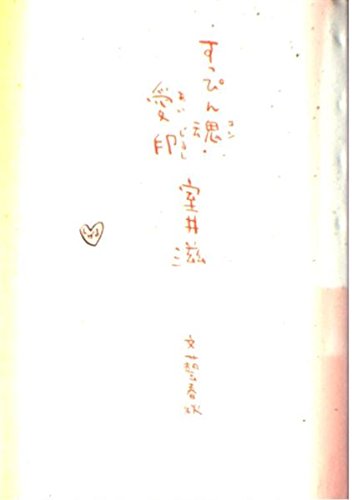 すっぴん魂・
コン
愛印
あいじるし
室井滋
文藝春秋